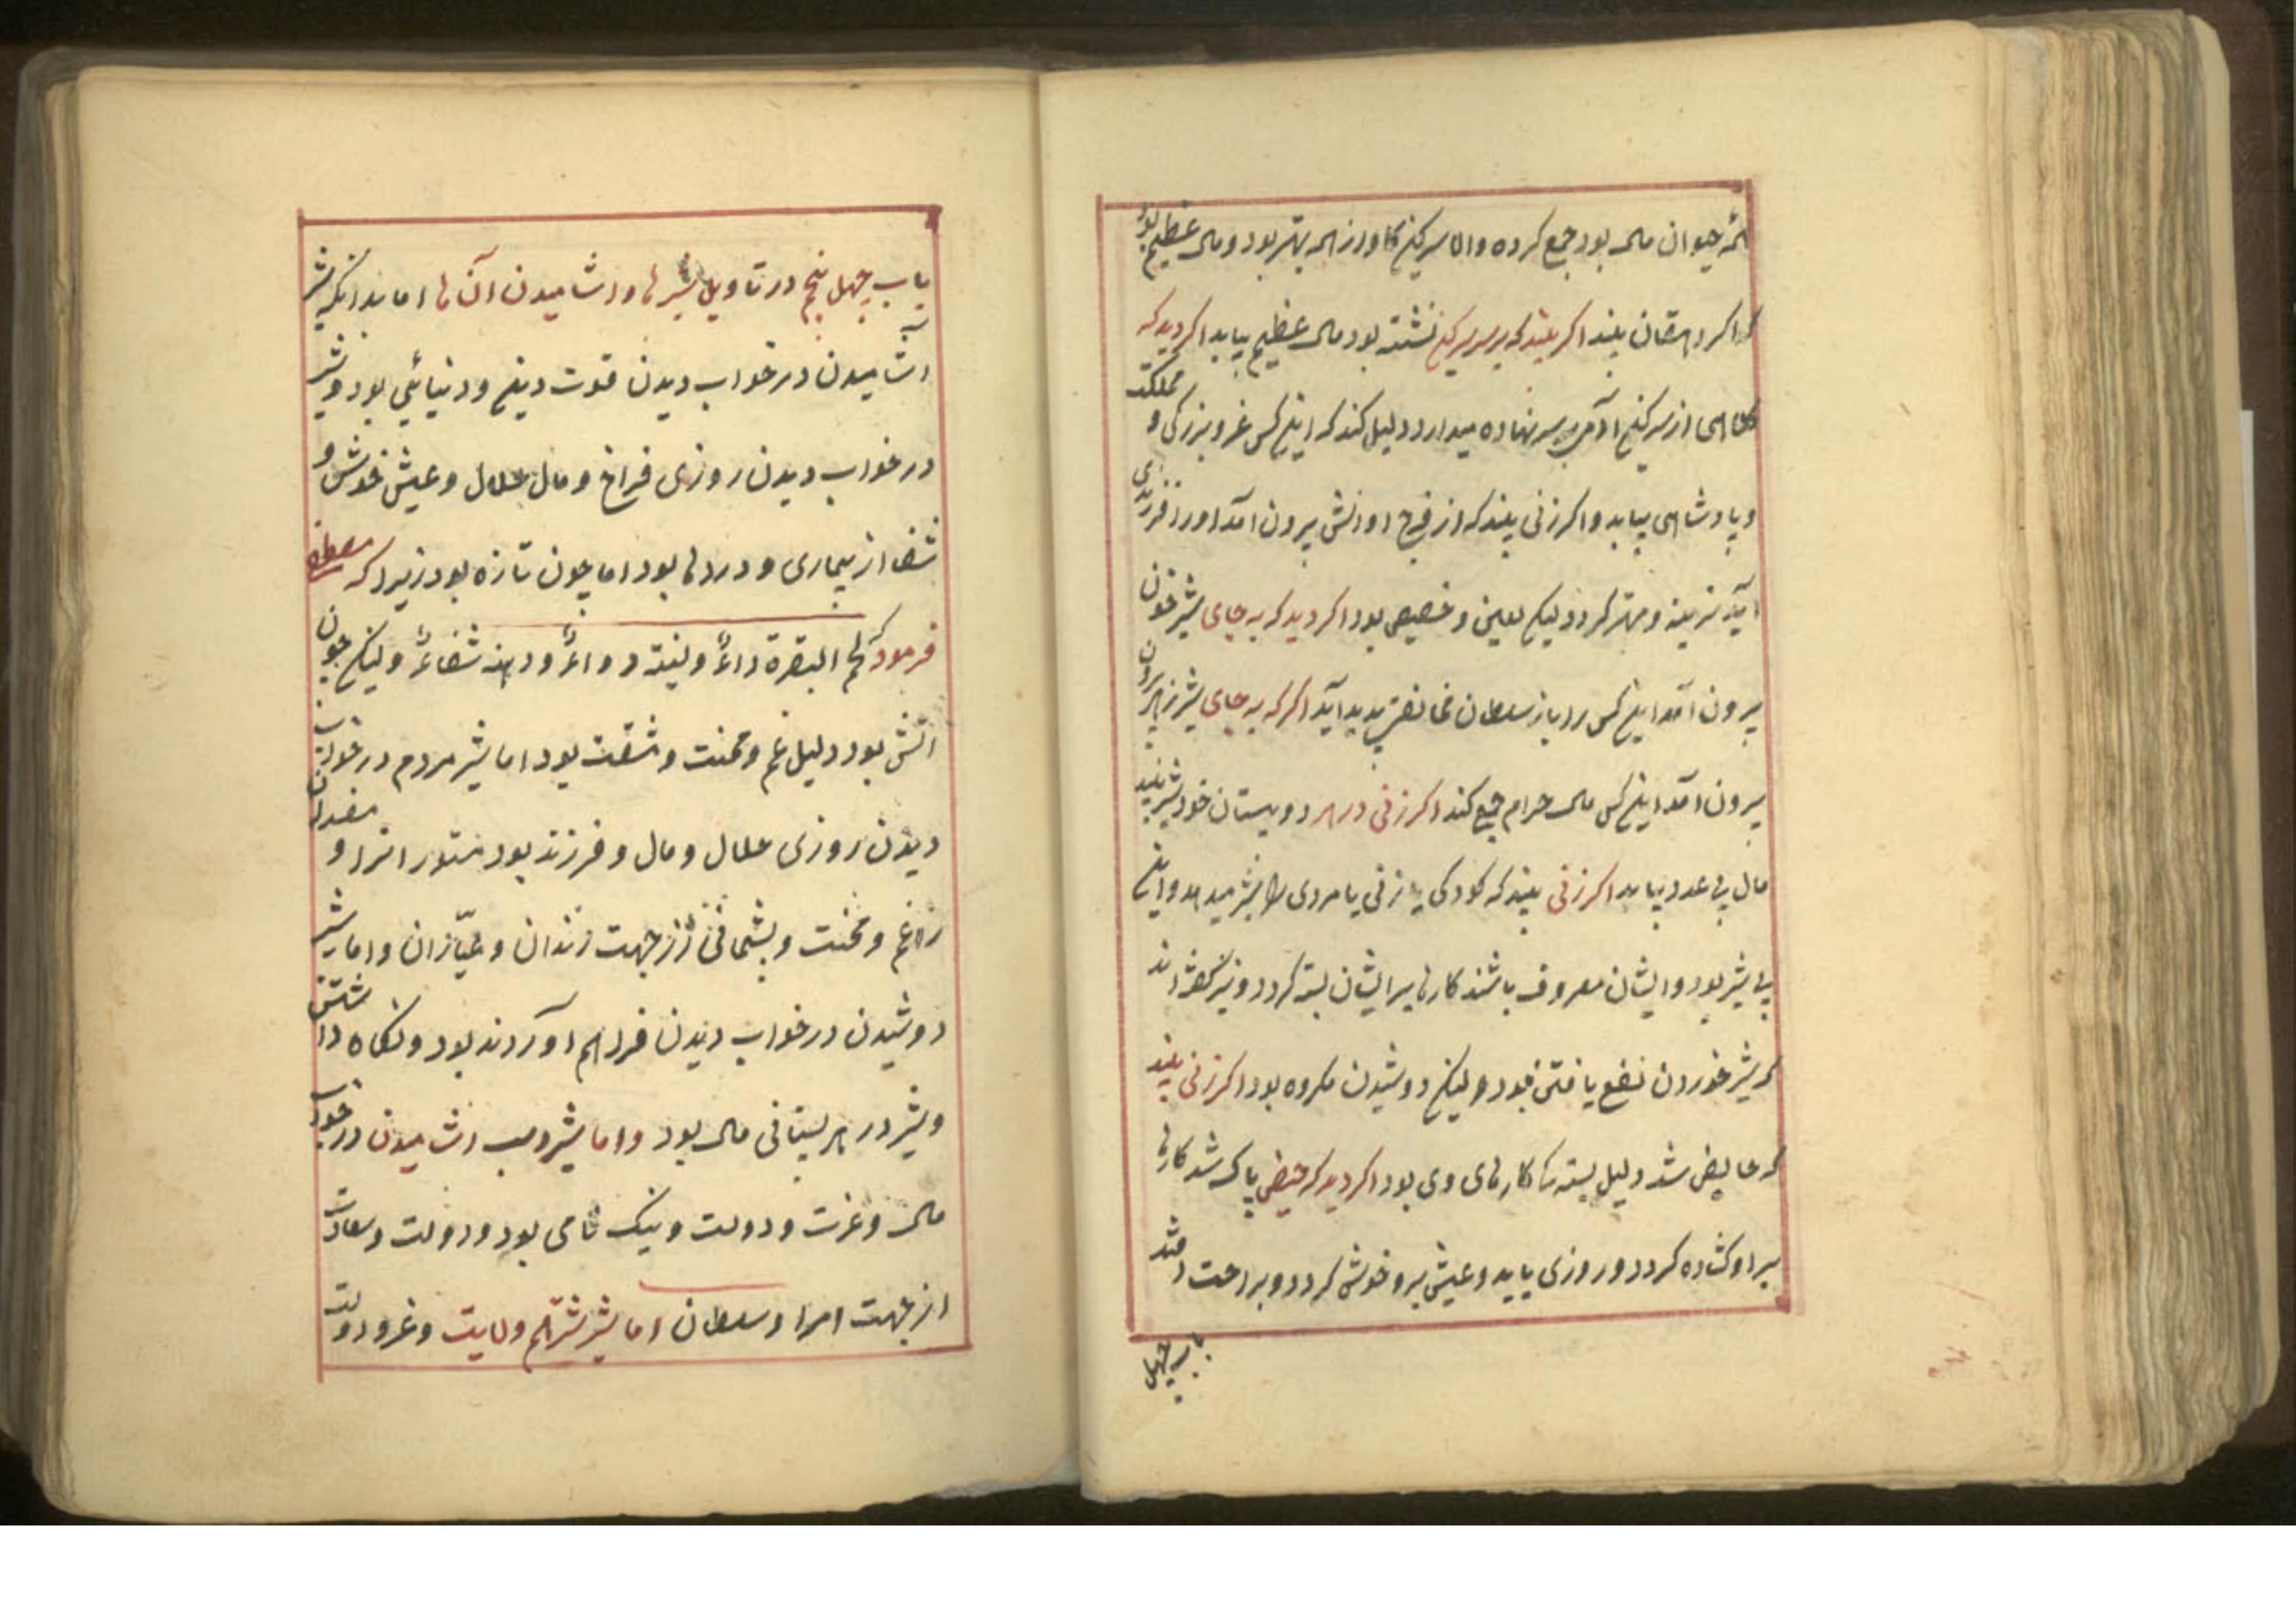 همه حیوان مال بود جمع کرده و اما سرکین کاو از همه بهتر بود و مال عظیم بود
که اگر دهقان بیند اکر بیند که بر سر سرکین نشسته بود مال عظیم بیابد اکر دید که
کلاهی از سرکین آدمی بر سر نهاده میدارد دلیل کند که اینکس عز و بزرکی و مملکت
و پادشاهی بیابد و اکر زنی بیند که از فرج او اتش بیرون آمد او را فرزندی
آید نرینه و مهتر کردد لیکن لعین و خصیص بود اکر دید که به جای شیر خون
بیرون آمد اینکس را باز سلطان مخالفتی پدید آید اکر که به جای شیر زهر بیرون
بیرون آمد اینکس مال حرام جمع کند اکر زنی در هر دو پستان خود شیر بیند
مال بی عدد بیابد اکر زنی بیند که کودکی یا زنی یا مردی را شیر میدهد و این
بی شیر بود و ایشان معروف باشند کارها بر ایشان بسته کردد و نیز کفته اند
که شیر خوردن نفع یافتن بود و لیکن دوشیدن مکروه بود اکر زنی بیند
که حایض شد دلیل بسته کارهای وی بود اکر دید که از حیض پاک شد کارها
بر او کشاده کردد و روزی یابد و عیش برو خوش کردد و براحت افتد
باب چهل
باب چهل پنج در تاویل شیرها و اشامیدن آن ها اما بدانکه شیر
اشامیدن در خواب دیدن قوت دینی و دنیائی بود و شیر
در خواب دیدن روزی فراخ و مال حلال و عیش خوش و
شفا از بیماری و دردها بود اما چون تازه بود زیرا که مصطفی
فرمود که لحم البقرة داءٌ و لبنه دواءٌ و دهنه شفاءٌ و لیکن چون
اتش بود دلیل غم و محنت و مشقت بود اما شیر مردم در خواب
دیدن روزی حلال و مال و فرزند بود مستور انرا و مفسدان
را غم و محنت و پشمانی از جهت زندان و عیّاران و اما شیر
دوشیدن در خواب دیدن فراهم آوردند بود و نکاه داشتن
و شیر در هر پستانی مال بود و اما شیر اسب اشامیدن در خواب
مال و عزت و دولت و نیک نامی بود و دولت و سعادت
از جهت امرا و سلطان اما شیر شتر هم ولایت و عز و دولت